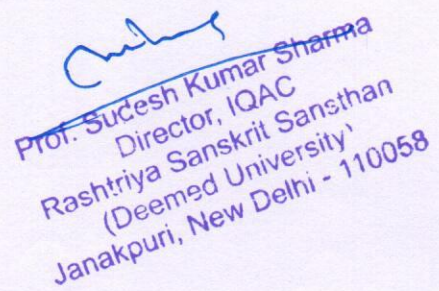 Prof. Sudesh Kumar Sharma
Director, IQAC
Rashtriya Sanskrit Sansthan
(Deemed University)
Janakpuri, New Delhi - 110058